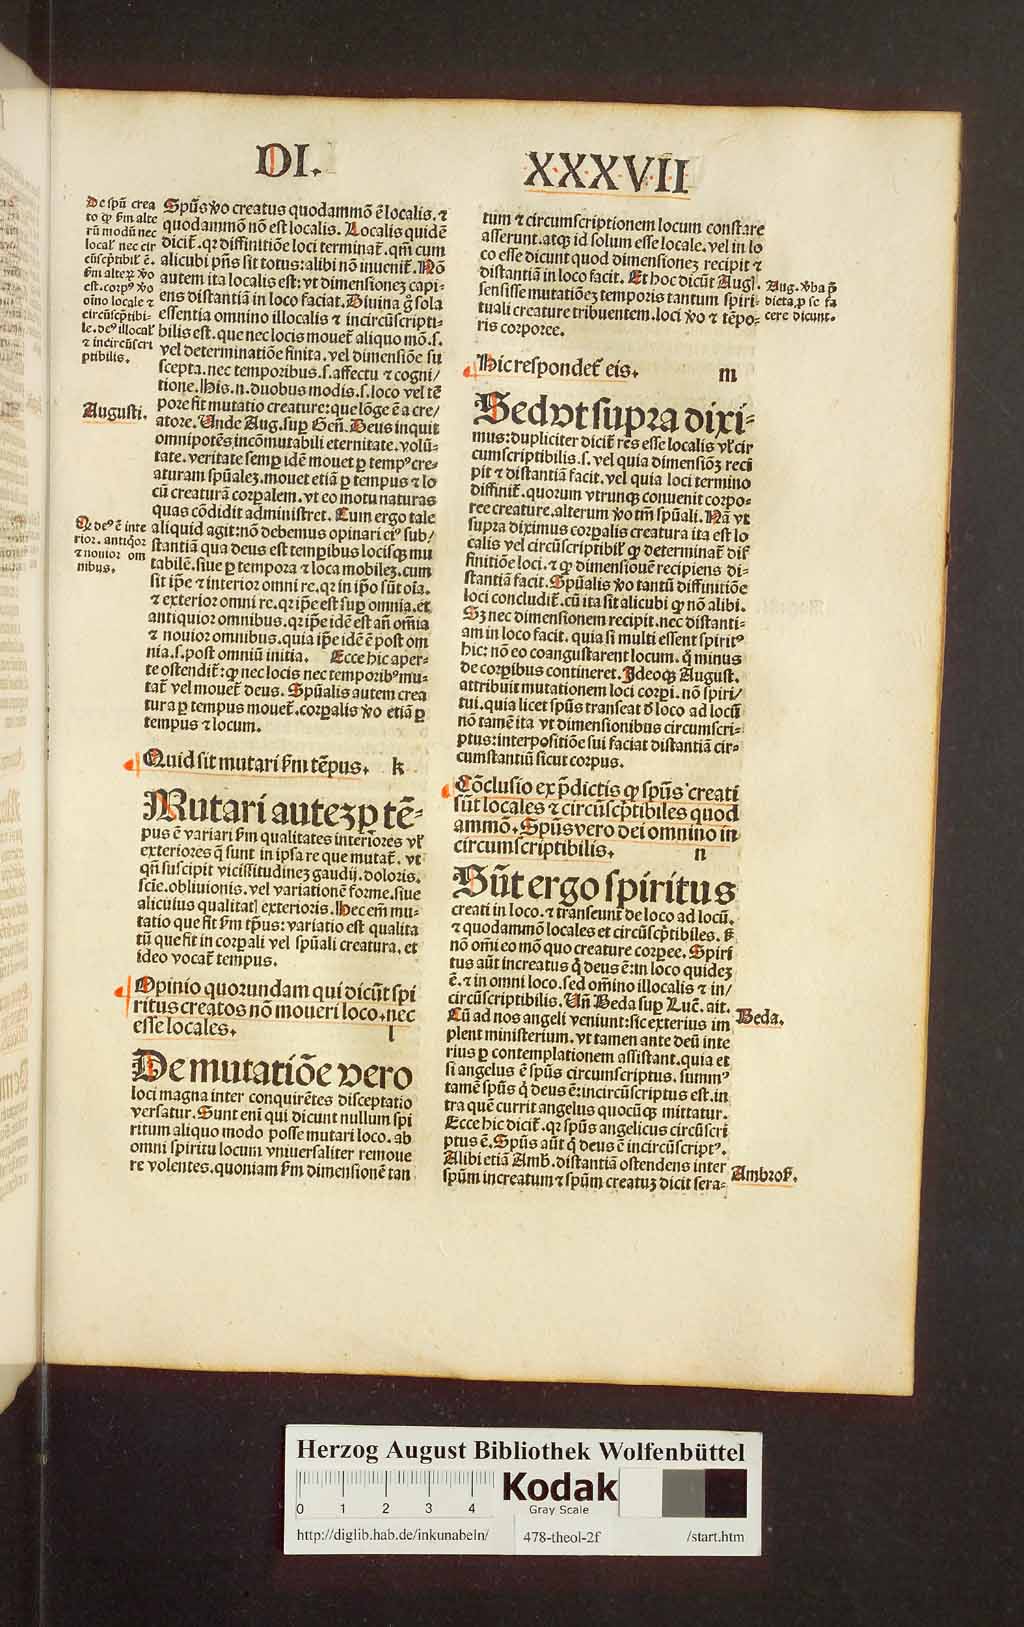 DI.
XXXVII
De spũ crea
to ꝙ ẜm alte
rũ modũ nec
localʼ nec cir
cũscp̃tibilʼ ẽ.
ẜm alteꝝ ꝟo
est. corpꝰ ꝟo
oĩno locale ⁊
circũscp̃tibi-
le. deꝰ illocalʼ
⁊ incircũscri
ptibilis.
Augusti.
Q deꝰ ẽ inte
rior. antiqͦor
⁊ nouior om
nibus.
Spũs ꝟo creatus quodammõ ẽ localis. ⁊
quodammõ nõ est localis. Localis quidẽ
dicit̃. qꝛ diffinitiõe loci terminat̃. qm̃ cum
alicubi pñs sit totus: alibi nõ inuenit̃. Nõ
autem ita localis est: vt dimensionez capi-
ens distantiã in loco faciat. Diuina g̊ sola
essentia omnino illocalis ⁊ incircũscripti-
bilis est. que nec locis mouet̃ aliquo mõ. s.
vel determinatiõe finita. vel dimensiõe su
scepta. nec temporibus. s. affectu ⁊ cogni/
tione. His. n. duobus modis. s. loco vel tẽ
pore fit mutatio creature: que lõge ẽ a cre/
atore. Unde Aug. suꝑ Geñ. Deus inquit
omnipotẽs incõmutabili eternitate. volũ-
tate. veritate semꝑ idẽ mouet ꝑ tempꝰ cre-
aturam spũalez. mouet etiã ꝑ tempus ⁊ lo
cũ creaturã corꝑalem. vt eo motu naturas
quas cõdidit administret. Cum ergo tale
aliquid agit: nõ debemus opinari eiꝰ sub/
stantiã qua deus est temꝑibus locisqꝫ mu
tabilẽ. siue ꝑ tempora ⁊ loca mobilez. cum
sit ip̃e ⁊ interior omni re. qꝛ in ip̃o sũt oĩa.
⁊ exterior omni re. qꝛ ip̃e est suꝑ omnia. et
antiquior omnibus. qꝛ ip̃e idẽ est añ om̃ia
⁊ nouior omnibus. quia ip̃e idẽ ẽ post om
nia. s. post omniũ initia. Ecce hic aper-
te ostendit̃: ꝙ nec locis nec temporibꝰ mu-
tat̃ vel mouet̃ deus. Spũalis autem crea
tura ꝑ tempus mouet̃. corꝑalis ꝟo etiã ꝑ
tempus ⁊ locum.
Quid sit mutari ẜm tẽpus. k
Mutari autez ꝑ tẽ-
pus ẽ variari ẜm qualitates interiores vlʼ
exteriores q̃ sunt in ipsa re que mutat̃. vt
qñ suscipit vicissitudinez gaudij. doloris.
scie. obliuionis. vel variationẽ forme. siue
alicuius qualitatꝭ exterioris. Hec em̃ mu-
tatio que fit ẜm tp̃us: variatio est qualita
tũ que fit in corꝑali vel spũali creatura. et
ideo vocat̃ tempus.
Opinio quorundam qui dicũt spi
ritus creatos nõ moueri loco. nec
esse locales. l
De mutatiõe vero
loci magna inter conquirẽtes disceptatio
versatur. Sunt eni qui dicunt nullum spi
ritum aliquo modo posse mutari loco. ab
omni spiritu locum vniuersaliter remoue
re volentes. quoniam ẜm dimensionẽ tan
tum ⁊ circumscriptionem locum constare
asserunt. atqꝫ id solum esse locale. vel in lo
co esse dicunt quod dimensionez recipit ⁊
distantiã in loco facit. Et hoc dicũt Augʼ.
sensisse mutatiõez temporis tantum spiri-
tuali creature tribuentem. loci ꝟo ⁊ tẽpo-
ris corporee.
Aug. ꝟba p̃
dicta, ꝑ se fa
cere dicunt.
Hic respondet̃ eis. m
Sed vt supra dixi-
mus: dupliciter dicit̃ res esse localis vlʼ cir
cumscriptibilis. s. vel quia dimensiõz reci
pit ⁊ distantiã facit. vel quia loci termino
diffinit̃. quorum vtrunqꝫ conuenit corpo-
ree creature. alterum ꝟo tm̃ spũali. Nã vt
supra diximus corꝑalis creatura ita est lo
calis vel circũscriptibilʼ ꝙ determinat̃ dif
finitiõe loci. ⁊ ꝙ dimensiouẽ recipiens di-
stantiã facit. Spũalis ꝟo tantũ diffinitiõe
loci concludit̃. cũ ita sit alicubi ꝙ nõ alibi.
Sꝫ nec dimensionem recipit. nec distanti-
am in loco facit. quia si multi essent spiritꝰ
hic: nõ eo coangustarent locum. q̊ minus
de corꝑibus contineret. Ideoqꝫ August.
attribuit mutationem loci corꝑi. nõ spiri/
tui. quia licet spũs transeat ð loco ad locũ
nõ tamẽ ita vt dimensionibus circumscri-
ptus: interpositiõe sui faciat distantiã cir-
cumstantiũ sicut corpus.
Cõclusio ex p̃dictis ꝙ spũs creati
sũt locales ⁊ circũscp̃tibiles quod
ammõ. Spũs vero dei omnino in
circumscriptibilis. n
Sũt ergo spiritus
creati in loco. ⁊ transeunt de loco ad locũ.
⁊ quodammõ locales et circũscp̃tibiles. ẜꝫ
nõ om̃i eo mõ quo creature corꝑee. Spiri
tus aũt increatus q̇ deus ẽ: in loco quidez
ẽ. ⁊ in omni loco. sed om̃ino illocalis ⁊ in/
circũscriptibilis. Uñ Beda suꝑ Luč. ait.
Cũ ad nos angeli veniunt: sic exterius im
plent ministerium. vt tamen ante deũ inte
rius ꝑ contemplationem assistant. quia et
si angelus ẽ spũs circumscriptus. summꝰ
tamẽ spũs q̇ deus ẽ: incircũscriptus est. in
tra quẽ currit angelus quocũqꝫ mittatur.
Ecce hic dicit̃. qꝛ spũs angelicus circũscri
ptus ẽ. Spũs aũt q̇ deus ẽ incircũscriptꝰ.
Alibi etiã Amb. distantiã ostendens inter
spũm increatum ⁊ spũm creatuz dicit sera-
Beda.
Ambrosʼ.
Herzog August Bibliothek Wolfenbüttel
0 1 2 3 4
Kodak
Gray Scale
http://diglib.hab.de/inkunabeln/ 478-theol-2f /start.htm